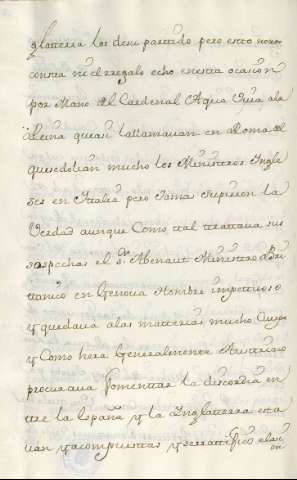 glaterra los deno partido pero esto no
contra ni el regalo echo enesta ocasion
por Mano del Cardenal Aqua Viva, ala
Reina que asi la llamavan en Roma de
que se dolian mucho los Ministros Ingle
ses en Italia pero Jamas supieron la
Verdad aunque Como tal trattava sus
sospechas el Sr. Menaut Ministro Bri
tanico en Genova Hombre impetuoso
y que dava alas matterias mucho Cuerpo
y Como hera Generalmente Austriaco
procurava fomentar la discordia en
tre la España y la Inglatterra esta
van ya compuestas y se rattifico el